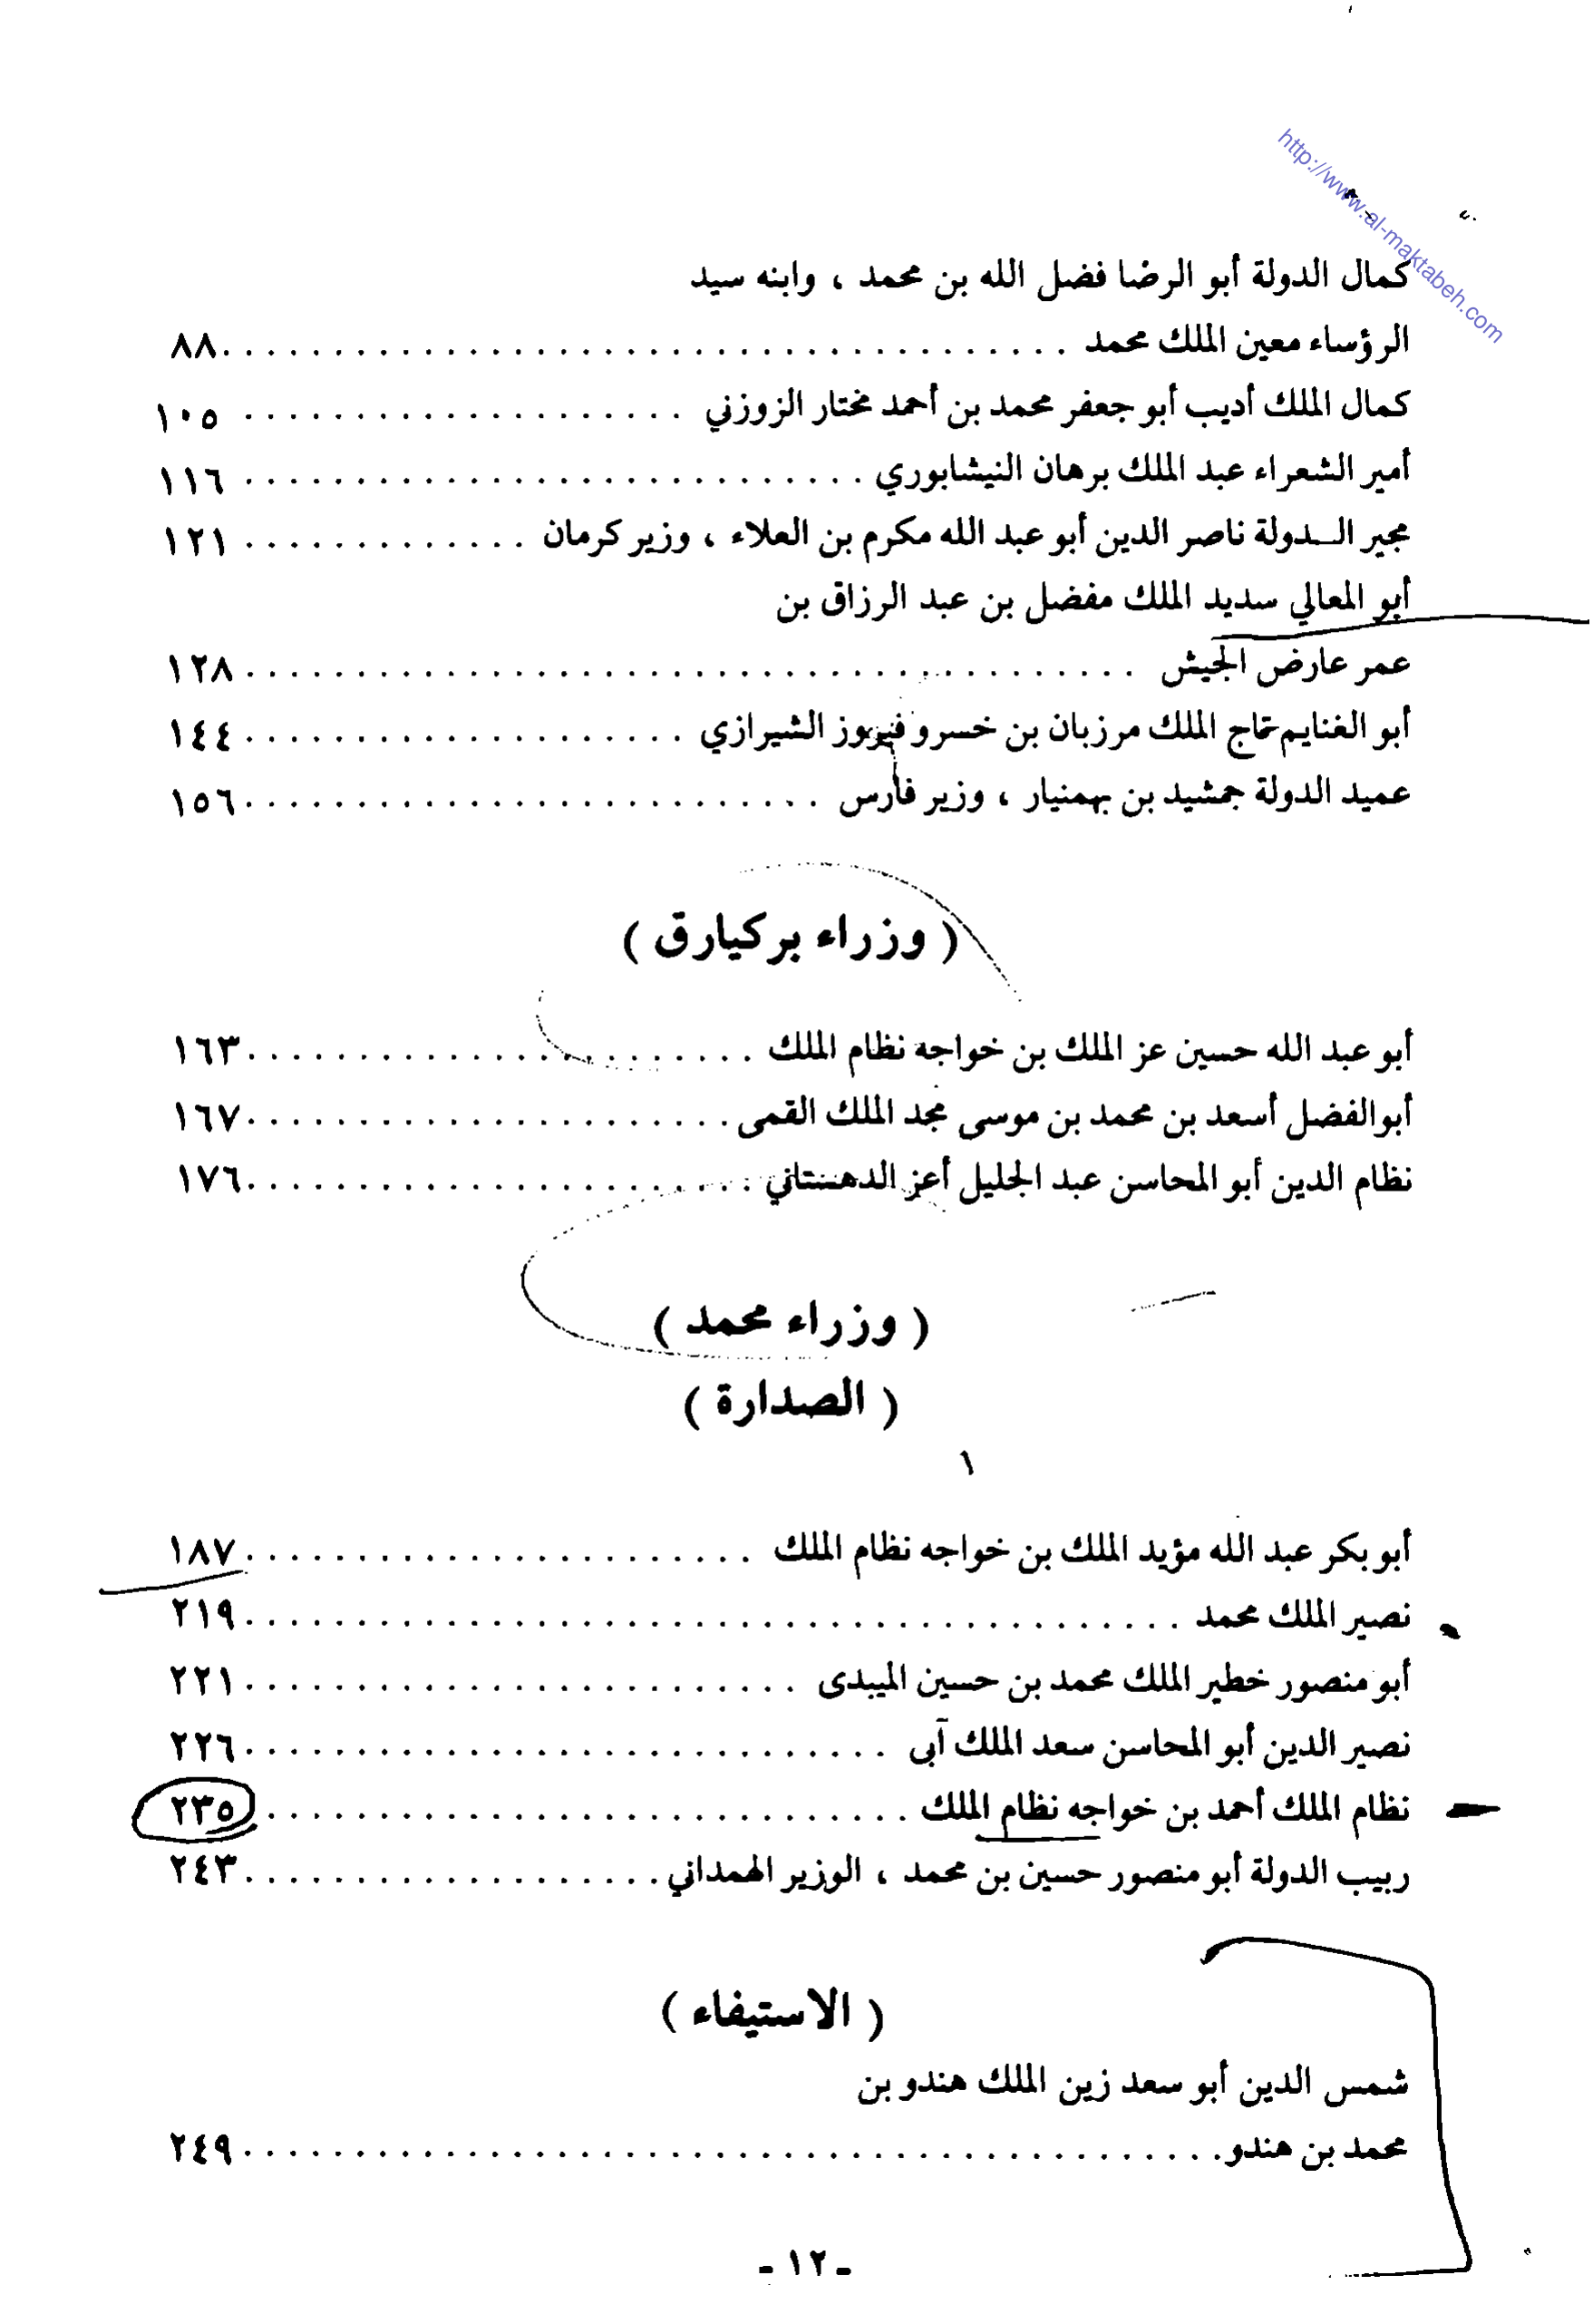 http://www.al-maktabeh.com
كمال الدولة أبو الرضا فضل الله بن محمد ، وابنه سيد
الرؤساء معين الملك محمد ...................................... ٨٨
كمال الملك أديب أبو جعفر محمد بن أحمد مختار الزوزني .................... ١٠٥
أمير الشعراء عبد الملك برهان النيشابوري ............................ ١١٦
مجير الــدولة ناصر الدين أبو عبد الله مكرم بن العلاء ، وزير كرمان ............. ١٢١
أبو المعالي سديد الملك مفضل بن عبد الرزاق بن
عمر عارض الجيش ........................................ ١٢٨
أبو الغنايم تاج الملك مرزبان بن خسرو فيروز الشيرازي .................... ١٤٤
عميد الدولة جمشيد بن بهمنيار ، وزير فارس .......................... ١٥٦
( وزراء بركيارق )
أبو عبد الله حسين عز الملك بن خواجه نظام الملك ....................... ١٦٣
أبوالفضل أسعد بن محمد بن موسى مجد الملك القمى ...................... ١٦٧
نظام الدين أبو المحاسن عبد الجليل أعز الدهستاني ....................... ١٧٦
( وزراء محمد )
( الصدارة )
١
أبو بكر عبد الله مؤيد الملك بن خواجه نظام الملك ....................... ١٨٧
نصير الملك محمد .......................................... ٢١٩
أبو منصور خطير الملك محمد بن حسين الميبدى ......................... ٢٢١
نصير الدين أبو المحاسن سعد الملك آبى ............................. ٢٢٦
نظام الملك أحمد بن خواجه نظام الملك ............................. ٢٣٥
ربيب الدولة أبو منصور حسين بن محمد ، الوزير الهمداني ................... ٢٤٣
( الاستيفاء )
شمس الدين أبو سعد زين الملك هندو بن
محمد بن هندو ............................................ ٢٤٩
- ١٢ -